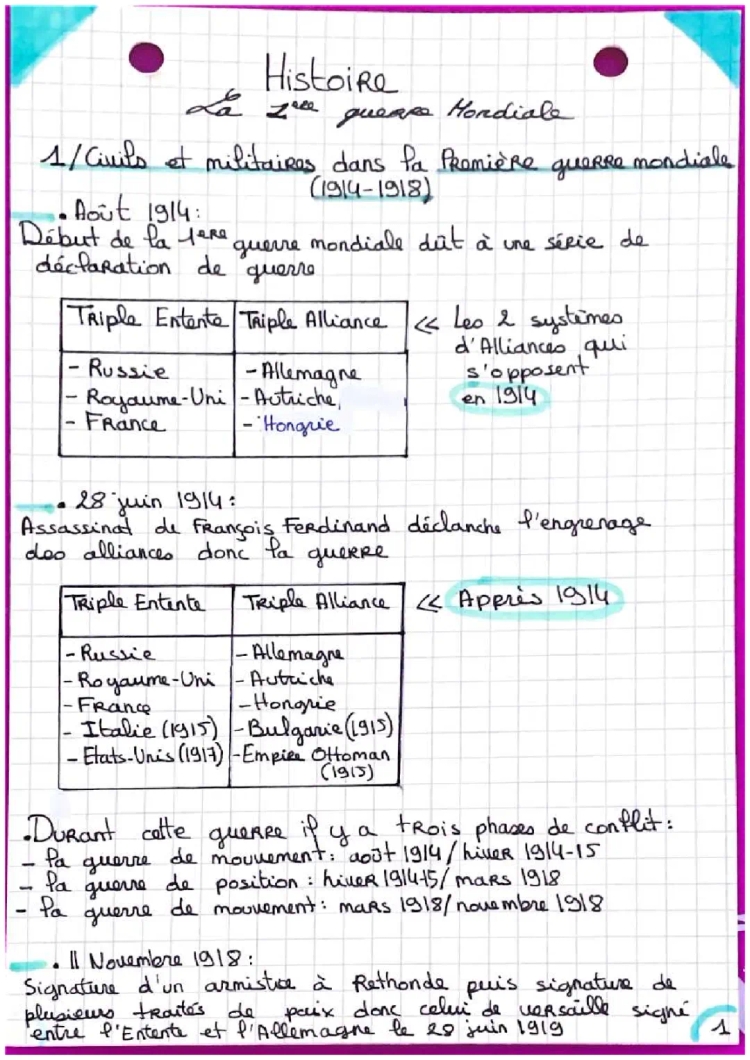 Histoire
La 1ère guerre Mondiale
1/Civils et militaires dans la Première guerre mondiale
(1914-1918)
• Août 1914:
Début de la 1ere guerre mondiale dût à une série de
déclaration de guerre
Triple Entente Triple Alliance << Les 2 systèmes
d'Alliances qui
- Russie - Allemagne s'opposent
- Royaume-Uni - Autriche, en 1914
- France - Hongrie
• 28 juin 1914:
Assassinat de François Ferdinand déclanche l'engrenage
des alliances donc la guerre
Triple Entente Triple Alliance << Apprès 1914
- Russie - Allemagne
- Royaume-Uni - Autriche
- France - Hongrie
- Italie (1915) - Bulgarie (1915)
- Etats-Unis (1917) - Empire Ottoman
(1915)
• Durant cette guerre il y a trois phases de conflit:
- la guerre de mouvement: août 1914/hiver 1914-15
- la guerre de position: hiver 1914-15/mars 1918
- la guerre de mouvement: mars 1918/novembre 1918
• 11 Novembre 1918:
Signature d'un armistice à Rethonde puis signature de
plusieurs traités de paix donc celui de versaille signé
entre l'Entente et l'Allemagne le 28 juin 1919
1